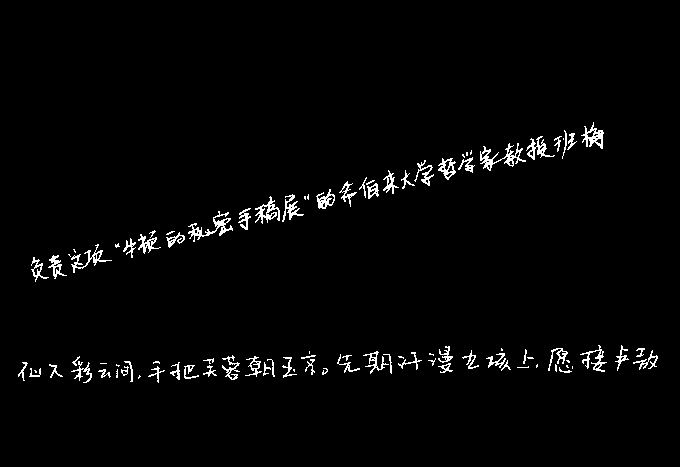 负责这项“牛顿的秘密手稿展”的希伯来大学哲学家教授班梅
仙人彩云间,手把芙蓉朝玉京。先期汗漫九垓上,愿接卢敖